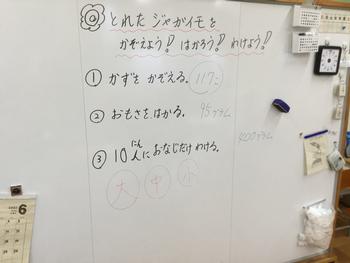 とれた ジャガイモを
かぞえよう! はかろう! わけよう!
① かずを かぞえる。 117こ
② おもさを はかる。 95グラム
400グラム
③ 10人に おなじだけ わける。
にん
大 中 小
6